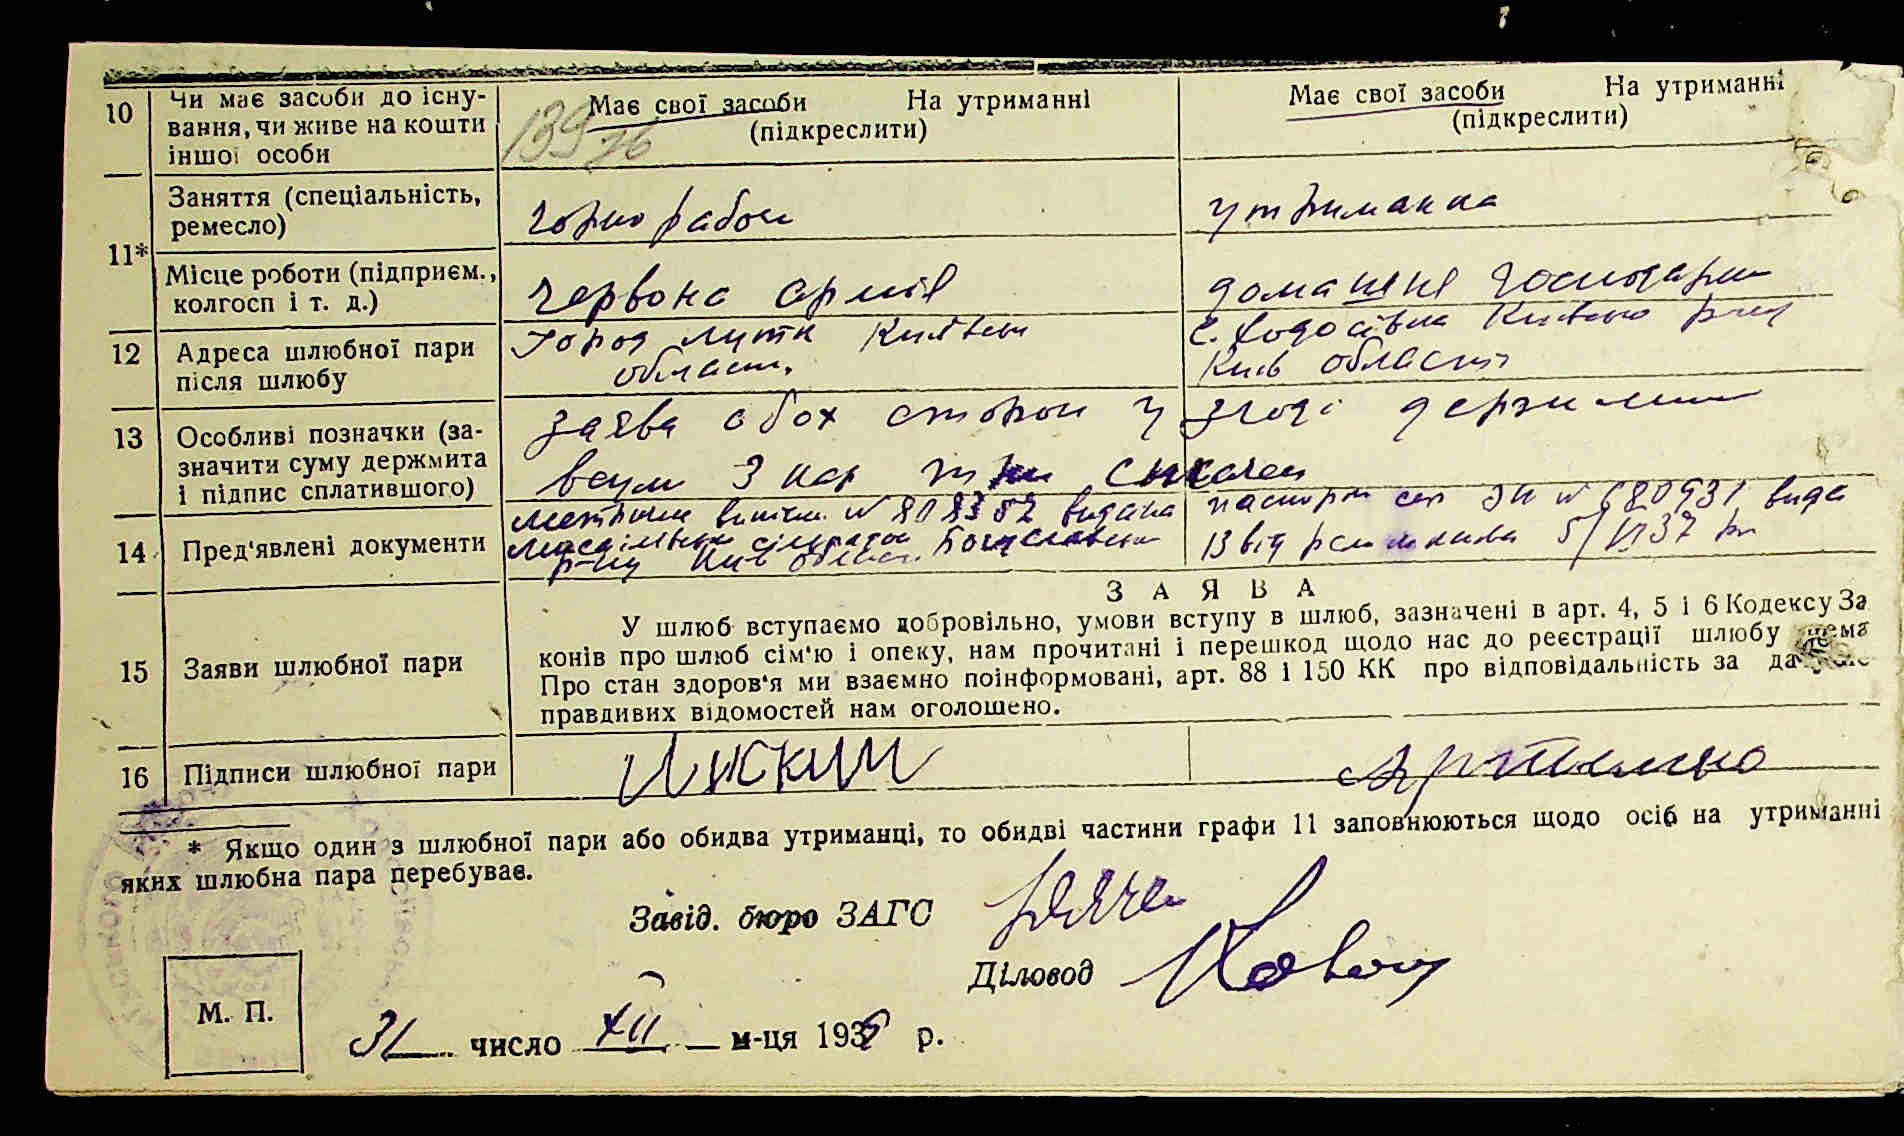 10 Чи має засоби до існу-
вання, чи живе на кошти
іншої особи
139
76
Має свої засоби На утриманні
(підкреслити)
Має свої засоби На утриманні
(підкреслити)
11*
Заняття (спеціальність,
ремесло)
чорнорабоч
утриманка
Місце роботи (підприєм.,
колгосп і т. д.)
Червона армія
домашнє господарш
12 Адреса шлюбної пари
після шлюбу
Город Київськ
області.
с. Ходосівка Київсько
Київ області
13 Особливі позначки (за-
значити суму держмита
і підпис сплатившого)
заява обох сторон у згоді
3 кар
14 Пред'явлені документи
№ 808382 видана
сільрадою Богуславськ
р-ну Київ област.
паспорт № 680931 вида
13 від 5/ 37 р
15 Заяви шлюбної пари
ЗАЯВА
У шлюб вступаємо добровільно, умови вступу в шлюб, зазначені в арт. 4, 5 і 6 Кодексу За
конів про шлюб сім'ю і опеку, нам прочитані і перешкод щодо нас до реєстрації шлюбу нема
Про стан здоров'я ми взаємно поінформовані, арт. 88 і 150 КК про відповідальність за
правдивих відомостей нам оголошено.
16 Підписи шлюбної пари
* Якщо один з шлюбної пари або обидва утриманці, то обидві частини графи 11 заповнюються щодо осіб на утриманні
яких шлюбна пара перебуває.
Завід. бюро ЗАГС
Діловод
М. П.
31 число XII м-ця 193 р.